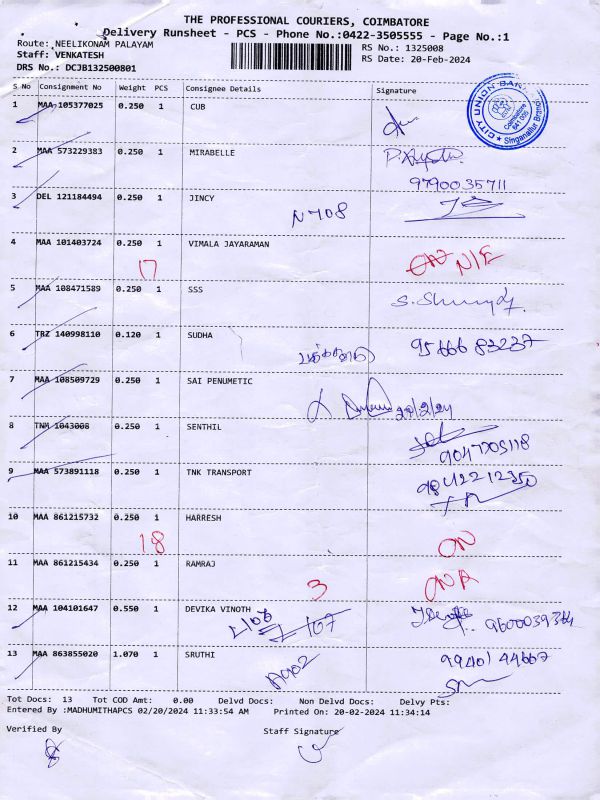 THE PROFESSIONAL COURIERS, COIMBATORE
Delivery Runsheet - PCS - Phone No.:0422-3505555 - Page No.:1
Route: NEELIKONAM PALAYAM
RS No.: 1325008
Staff: VENKATESH
RS Date: 20-Feb-2024
DRS No.: DCJB132500801
S No Consignment No Weight PCS Consignee Details Signature
1 MAA 105377025 0.250 1 CUB
CITY UNION BANK
Coimbatore 641 005
Singanallur Branch
2 MAA 573229383 0.250 1 MIRABELLE
9790035711
3 DEL 121184494 0.250 1 JINCY
N708
4 MAA 101403724 0.250 1 VIMALA JAYARAMAN
17
5 MAA 108471589 0.250 1 SSS
6 TRZ 140998110 0.120 1 SUDHA
95666 83237
7 MAA 108509729 0.250 1 SAI PENUMETIC
20/2/24
8 TNM 1043008 0.250 1 SENTHIL
9047205118
9 MAA 573891118 0.250 1 TNK TRANSPORT
10 MAA 861215732 0.250 1 HARRESH
18 ON
11 MAA 861215434 0.250 1 RAMRAJ
3
12 MAA 104101647 0.550 1 DEVIKA VINOTH
107
13 MAA 863855020 1.070 1 SRUTHI
A902 99401 44667
Tot Docs: 13 Tot COD Amt: 0.00 Delvd Docs: Non Delvd Docs: Delvy Pts:
Entered By :MADHUMITHAPCS 02/20/2024 11:33:54 AM Printed On: 20-02-2024 11:34:14
Verified By Staff Signature